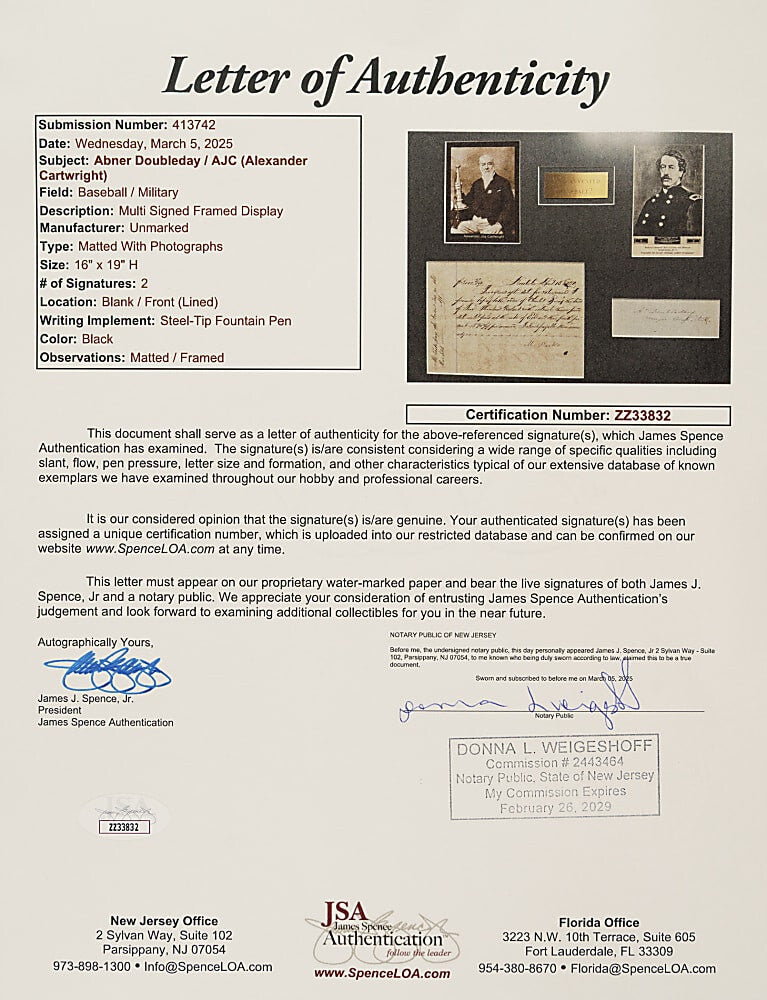 Letter of Authenticity
Submission Number: 413742
Date: Wednesday, March 5, 2025
Subject: Abner Doubleday / AJC (Alexander
Cartwright)
Field: Baseball / Military
Description: Multi Signed Framed Display
Manufacturer: Unmarked
Type: Matted With Photographs
Size: 16" x 19" H
# of Signatures: 2
Location: Blank / Front (Lined)
Writing Implement: Steel-Tip Fountain Pen
Color: Black
Observations: Matted / Framed
Certification Number: ZZ33832
This document shall serve as a letter of authenticity for the above-referenced signature(s), which James Spence
Authentication has examined. The signature(s) is/are consistent considering a wide range of specific qualities including
slant, flow, pen pressure, letter size and formation, and other characteristics typical of our extensive database of known
exemplars we have examined throughout our hobby and professional careers.
It is our considered opinion that the signature(s) is/are genuine. Your authenticated signature(s) has been
assigned a unique certification number, which is uploaded into our restricted database and can be confirmed on our
website www.SpenceLOA.com at any time.
This letter must appear on our proprietary water-marked paper and bear the live signatures of both James J.
Spence, Jr and a notary public. We appreciate your consideration of entrusting James Spence Authentication's
judgement and look forward to examining additional collectibles for you in the near future.
Autographically Yours,
James J. Spence, Jr.
President
James Spence Authentication
NOTARY PUBLIC OF NEW JERSEY
Before me, the undersigned notary public, this day personally appeared James J. Spence, Jr 2 Sylvan Way - Suite
102, Parsippany, NJ 07054, to me known who being duly sworn according to law, claimed this to be a true
document.
Sworn and subscribed to before me on March 05, 2025
Donna L Weigeshoff
Notary Public
DONNA L. WEIGESHOFF
Commission # 2443464
Notary Public, State of New Jersey
My Commission Expires
February 26, 2029
JSA
ZZ33832
New Jersey Office
2 Sylvan Way, Suite 102
Parsippany, NJ 07054
973-898-1300 • Info@SpenceLOA.com
JSA
James Spence
Authentication
follow the leader
www.SpenceLOA.com
Florida Office
3223 N.W. 10th Terrace, Suite 605
Fort Lauderdale, FL 33309
954-380-8670 • Florida@SpenceLOA.com